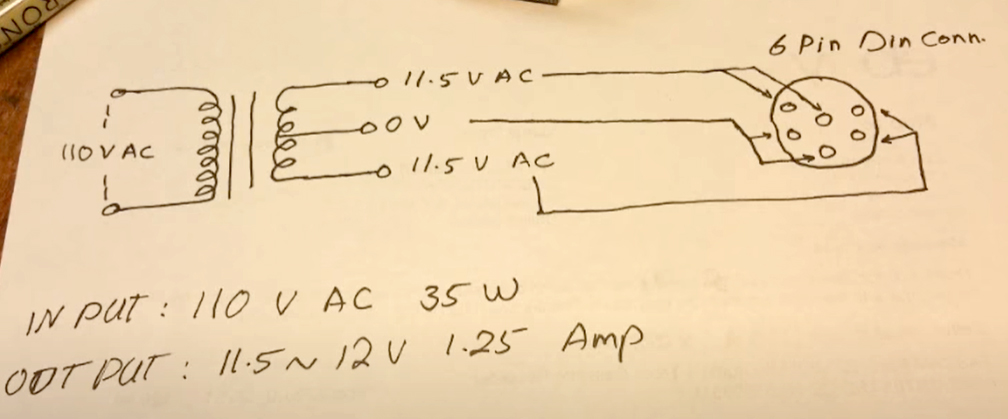 RON
6 Pin Din Conn.
11.5 V AC
0 V
110 V AC
11.5 V AC
INPUT : 110 V AC 35 W
OUTPUT : 11.5 ~ 12 V 1.25 Amp